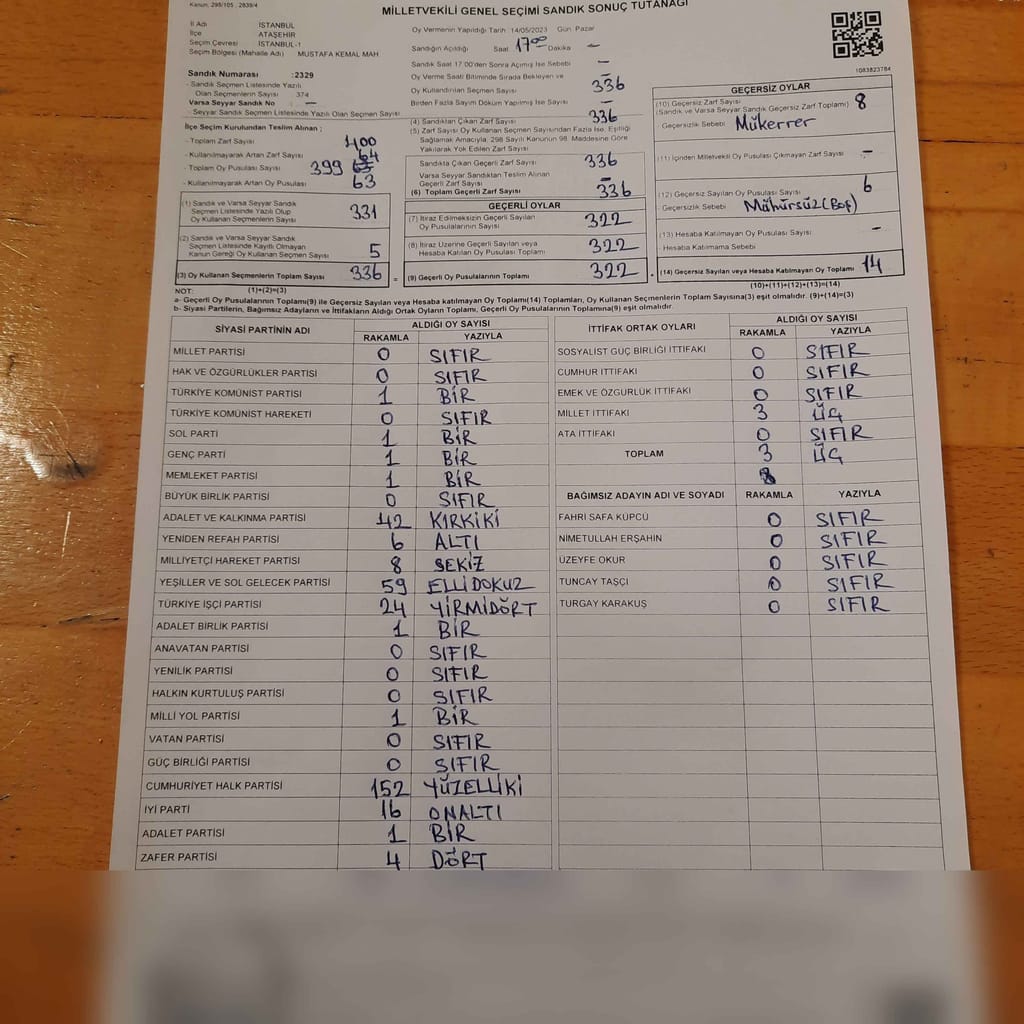 Kanun: 298/105 , 2839/4
MİLLETVEKİLİ GENEL SEÇİMİ SANDIK SONUÇ TUTANAĞI
İl Adı İSTANBUL
İlçe ATAŞEHİR
Seçim Çevresi İSTANBUL-1
Seçim Bölgesi (Mahalle Adı) MUSTAFA KEMAL MAH
Sandık Numarası :2329
- Sandık Seçmen Listesinde Yazılı
Olan Seçmenlerin Sayısı 374
Varsa Seyyar Sandık No —
- Seyyar Seçmen Listesinde Yazılı Olan Seçmen Sayısı
İlçe Seçim Kurulundan Teslim Alınan ;
- Toplam Zarf Sayısı 400
- Kullanılmayarak Artan Zarf Sayısı 64
- Toplam Oy Pusulası Sayısı 399
- Kullanılmayarak Artan Oy Pusulası 63
(1) Sandık ve Varsa Seyyar Sandık
Seçmen Listesinde Yazılı Olup
Oy Kullanan Seçmenlerin Sayısı 331
(2) Sandık ve Varsa Seyyar Sandık
Seçmen Listesinde Kayıtlı Olmayan
Kanun Gereği Oy Kullanan Seçmen Sayısı 5
(3) Oy Kullanan Seçmenlerin Toplam Sayısı 336 =
Oy Vermenin Yapıldığı Tarih 14/05/2023 Gün Pazar
Sandığın Açıldığı Saat 17⁰⁰ Dakika —
Sandık Saat 17:00'den Sonra Açılmış İse Sebebi —
Oy Verme Saati Bitiminde Sırada Bekleyen ve
Oy Kullandırılan Seçmen Sayısı 336
Birden Fazla Sayım Döküm Yapılmış İse Sayısı —
(4) Sandıktan Çıkan Zarf Sayısı 336
(5) Zarf Sayısı Oy Kullanan Seçmen Sayısından Fazla İse, Eşitliği
Sağlamak Amacıyla; 298 Sayılı Kanunun 98. Maddesine Göre
Yakılarak Yok Edilen Zarf Sayısı —
Sandıkta Çıkan Geçerli Zarf Sayısı 336
Varsa Seyyar Sandıktan Teslim Alınan
Geçerli Zarf Sayısı —
(6) Toplam Geçerli Zarf Sayısı 336
GEÇERLİ OYLAR
(7) İtiraz Edilmeksizin Geçerli Sayılan
Oy Pusulalarının Sayısı 322
(8) İtiraz Üzerine Geçerli Sayılan veya
Hesaba Katılan Oy Pusulası Sayısı 322
(9) Geçerli Oy Pusulalarının Toplamı 322
1083823784
GEÇERSİZ OYLAR
(10) Geçersiz Zarf Sayısı
(Sandık ve Varsa Seyyar Sandık Geçersiz Zarf Toplamı) 8
- Geçersizlik Sebebi Mükerrer
(11) İçinden Milletvekili Oy Pusulası Çıkmayan Zarf Sayısı —
(12) Geçersiz Sayılan Oy Pusulası Sayısı 6
- Geçersizlik Sebebi Mühürsüz (Boş)
(13) Hesaba Katılmayan Oy Pusulası Sayısı —
- Hesaba Katılmama Sebebi
(14) Geçersiz Sayılan veya Hesaba Katılmayan Oy Toplamı 14
NOT: (1)+(2)=(3) (10)+(11)+(12)+(13)=(14)
a- Geçerli Oy Pusulalarının Toplamı(9) ile Geçersiz Sayılan veya Hesaba katılmayan Oy Toplamı(14) Toplamları, Oy Kullanan Seçmenlerin Toplam Sayısına(3) eşit olmalıdır. (9)+(14)=(3)
b- Siyasi Partilerin, Bağımsız Adayların ve İttifakların Aldığı Ortak Oyların Toplamı, Geçerli Oy Pusulalarının Toplamına(9) eşit olmalıdır.
SİYASİ PARTİNİN ADI ALDIĞI OY SAYISI
RAKAMLA YAZIYLA
MİLLET PARTİSİ 0 SIFIR
HAK VE ÖZGÜRLÜKLER PARTİSİ 0 SIFIR
TÜRKİYE KOMÜNİST PARTİSİ 1 BİR
TÜRKİYE KOMÜNİST HAREKETİ 0 SIFIR
SOL PARTİ 1 BİR
GENÇ PARTİ 1 BİR
MEMLEKET PARTİSİ 1 BİR
BÜYÜK BİRLİK PARTİSİ 0 SIFIR
ADALET VE KALKINMA PARTİSİ 42 KIRKİKİ
YENİDEN REFAH PARTİSİ 6 ALTI
MİLLİYETÇİ HAREKET PARTİSİ 8 SEKİZ
YEŞİLLER VE SOL GELECEK PARTİSİ 59 ELLİDOKUZ
TÜRKİYE İŞÇİ PARTİSİ 24 YİRMİDÖRT
ADALET BİRLİK PARTİSİ 1 BİR
ANAVATAN PARTİSİ 0 SIFIR
YENİLİK PARTİSİ 0 SIFIR
HALKIN KURTULUŞ PARTİSİ 0 SIFIR
MİLLİ YOL PARTİSİ 1 BİR
VATAN PARTİSİ 0 SIFIR
GÜÇ BİRLİĞİ PARTİSİ 0 SIFIR
CUMHURİYET HALK PARTİSİ 152 YÜZELLİKİ
İYİ PARTİ 16 ONALTI
ADALET PARTİSİ 1 BİR
ZAFER PARTİSİ 4 DÖRT
İTTİFAK ORTAK OYLARI ALDIĞI OY SAYISI
RAKAMLA YAZIYLA
SOSYALİST GÜÇ BİRLİĞİ İTTİFAKI 0 SIFIR
CUMHUR İTTİFAKI 0 SIFIR
EMEK VE ÖZGÜRLÜK İTTİFAKI 0 SIFIR
MİLLET İTTİFAKI 3 ÜÇ
ATA İTTİFAKI 0 SIFIR
TOPLAM 3 ÜÇ
BAĞIMSIZ ADAYIN ADI VE SOYADI RAKAMLA YAZIYLA
FAHRİ SAFA KÜPCÜ 0 SIFIR
NİMETULLAH ERŞAHİN 0 SIFIR
ÜZEYFE OKUR 0 SIFIR
TUNCAY TAŞÇI 0 SIFIR
TURGAY KARAKUŞ 0 SIFIR